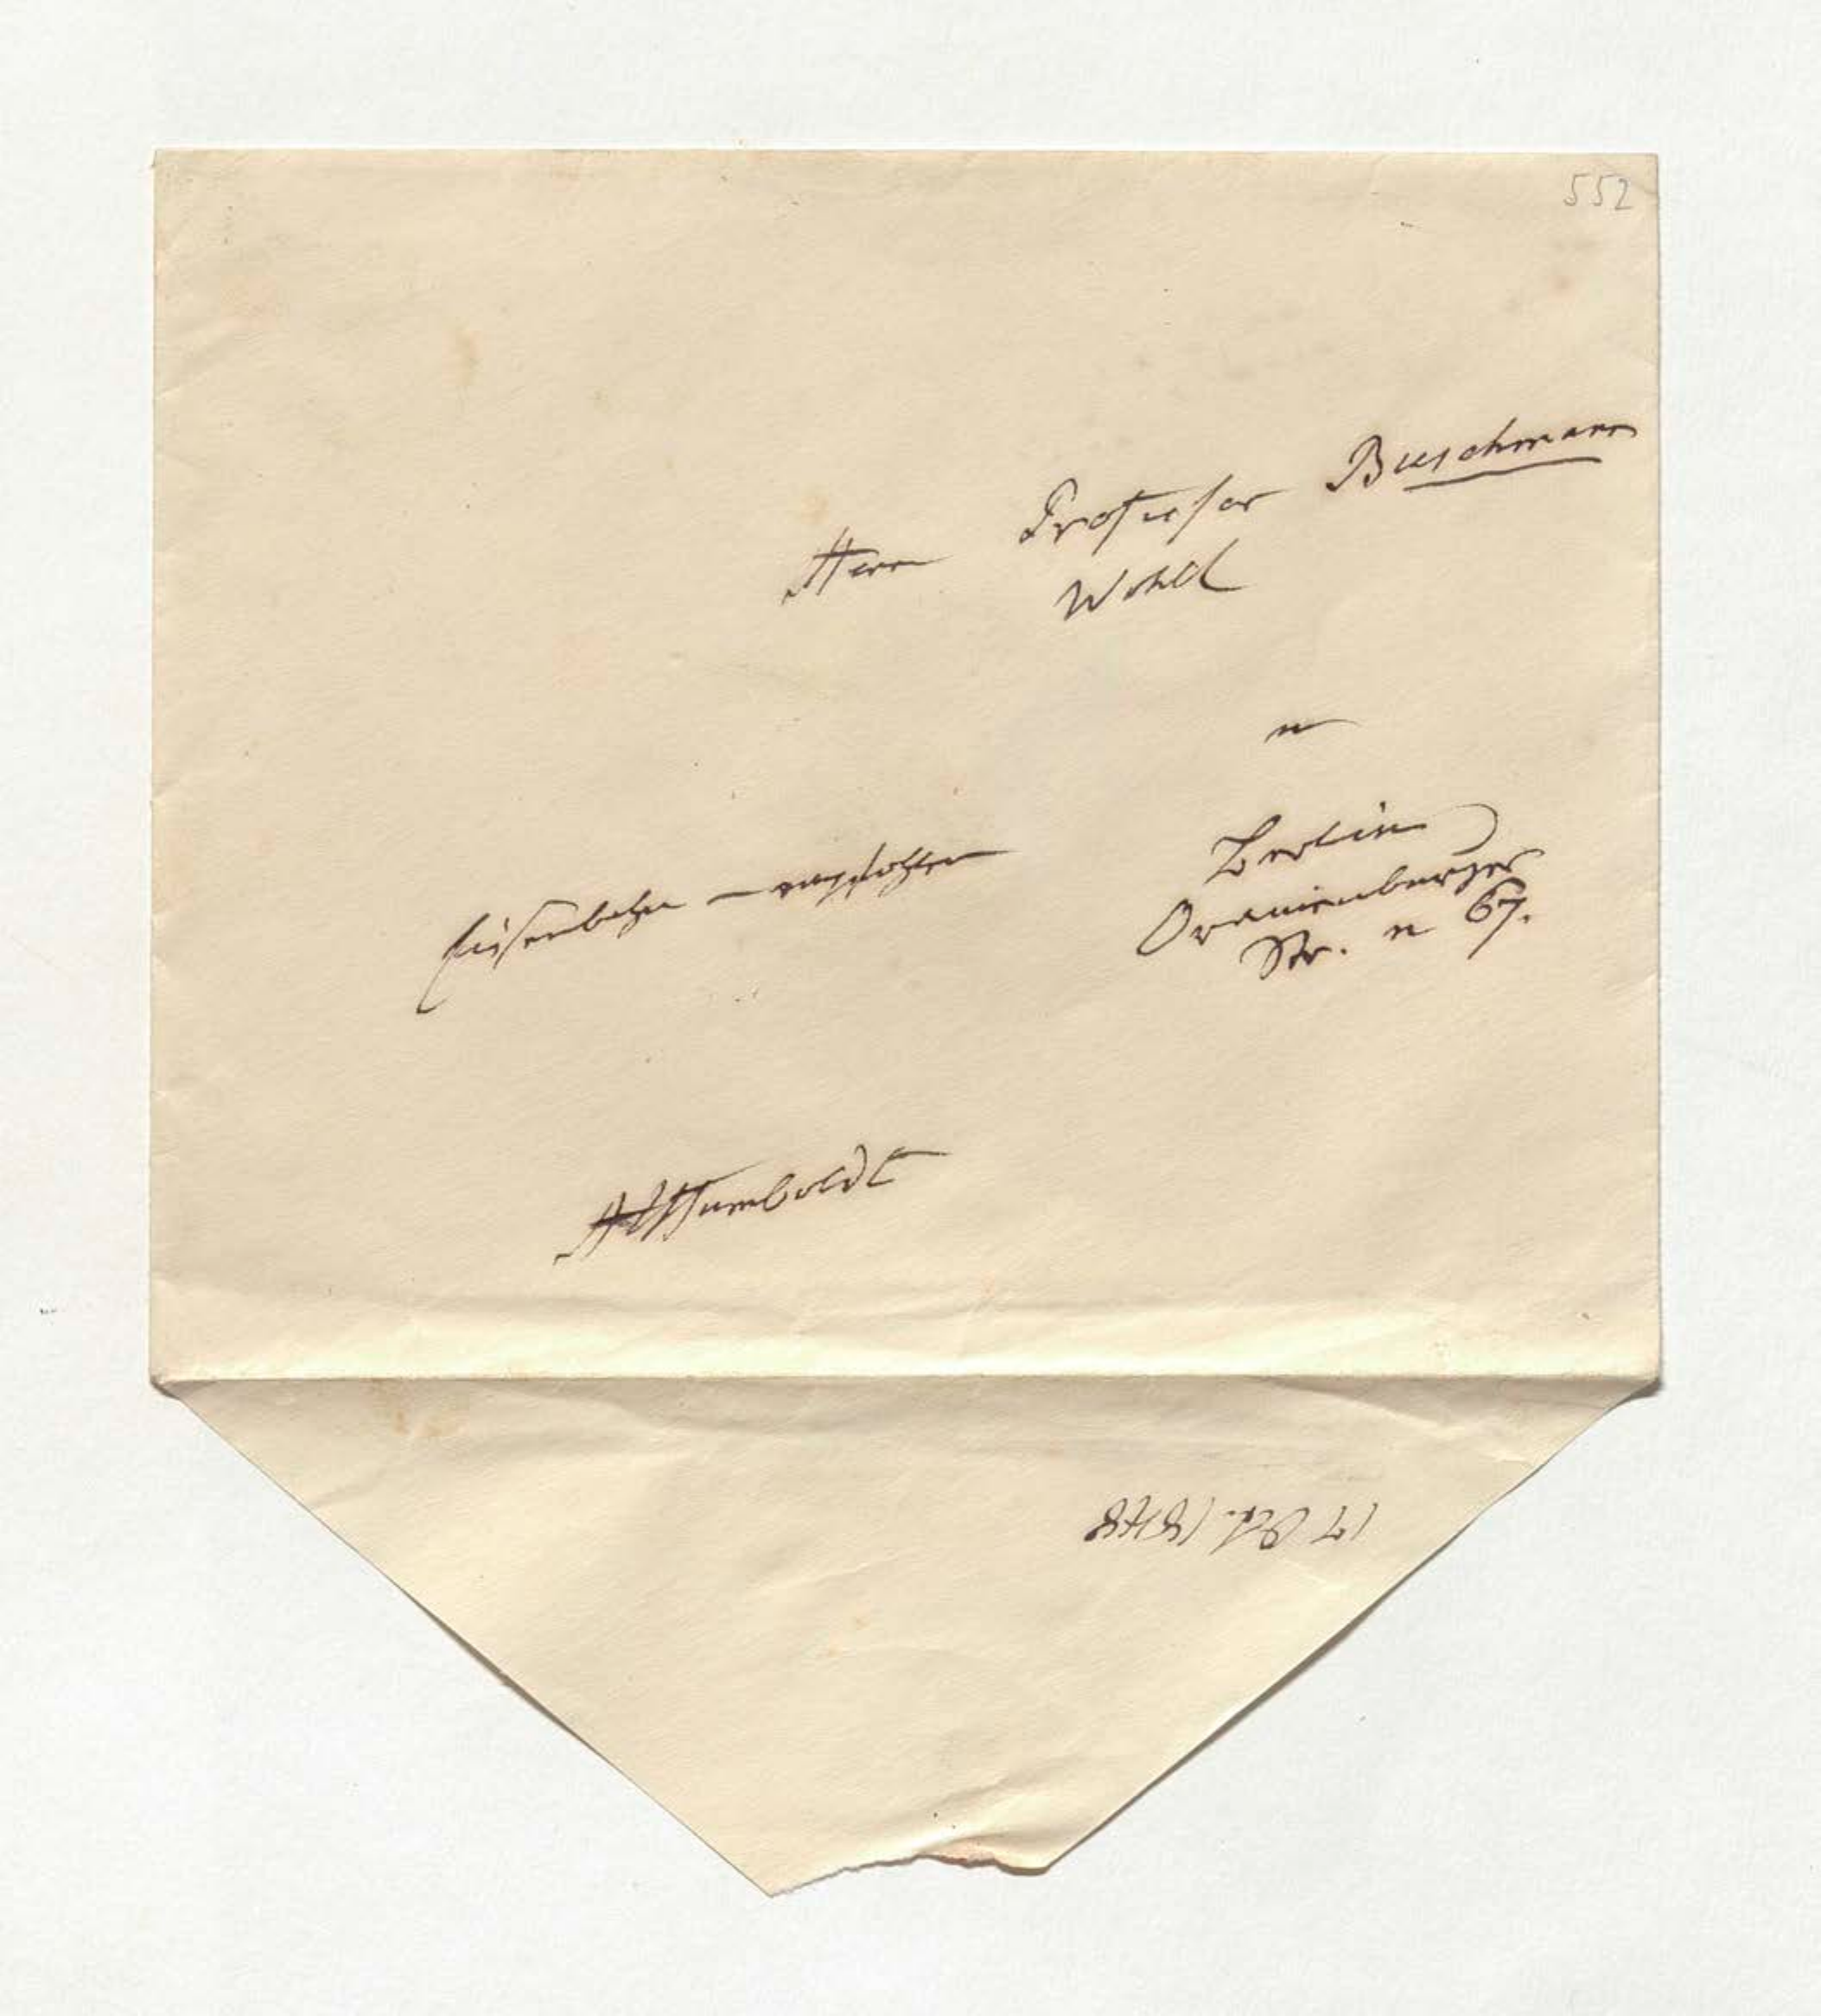 552
Herrn Professor Buschmann
Wohl
in
Berlin
Oranienburger
Str. n 67.
Eisenbahn – empfohlen
AvHumboldt
17 Oct. 1848